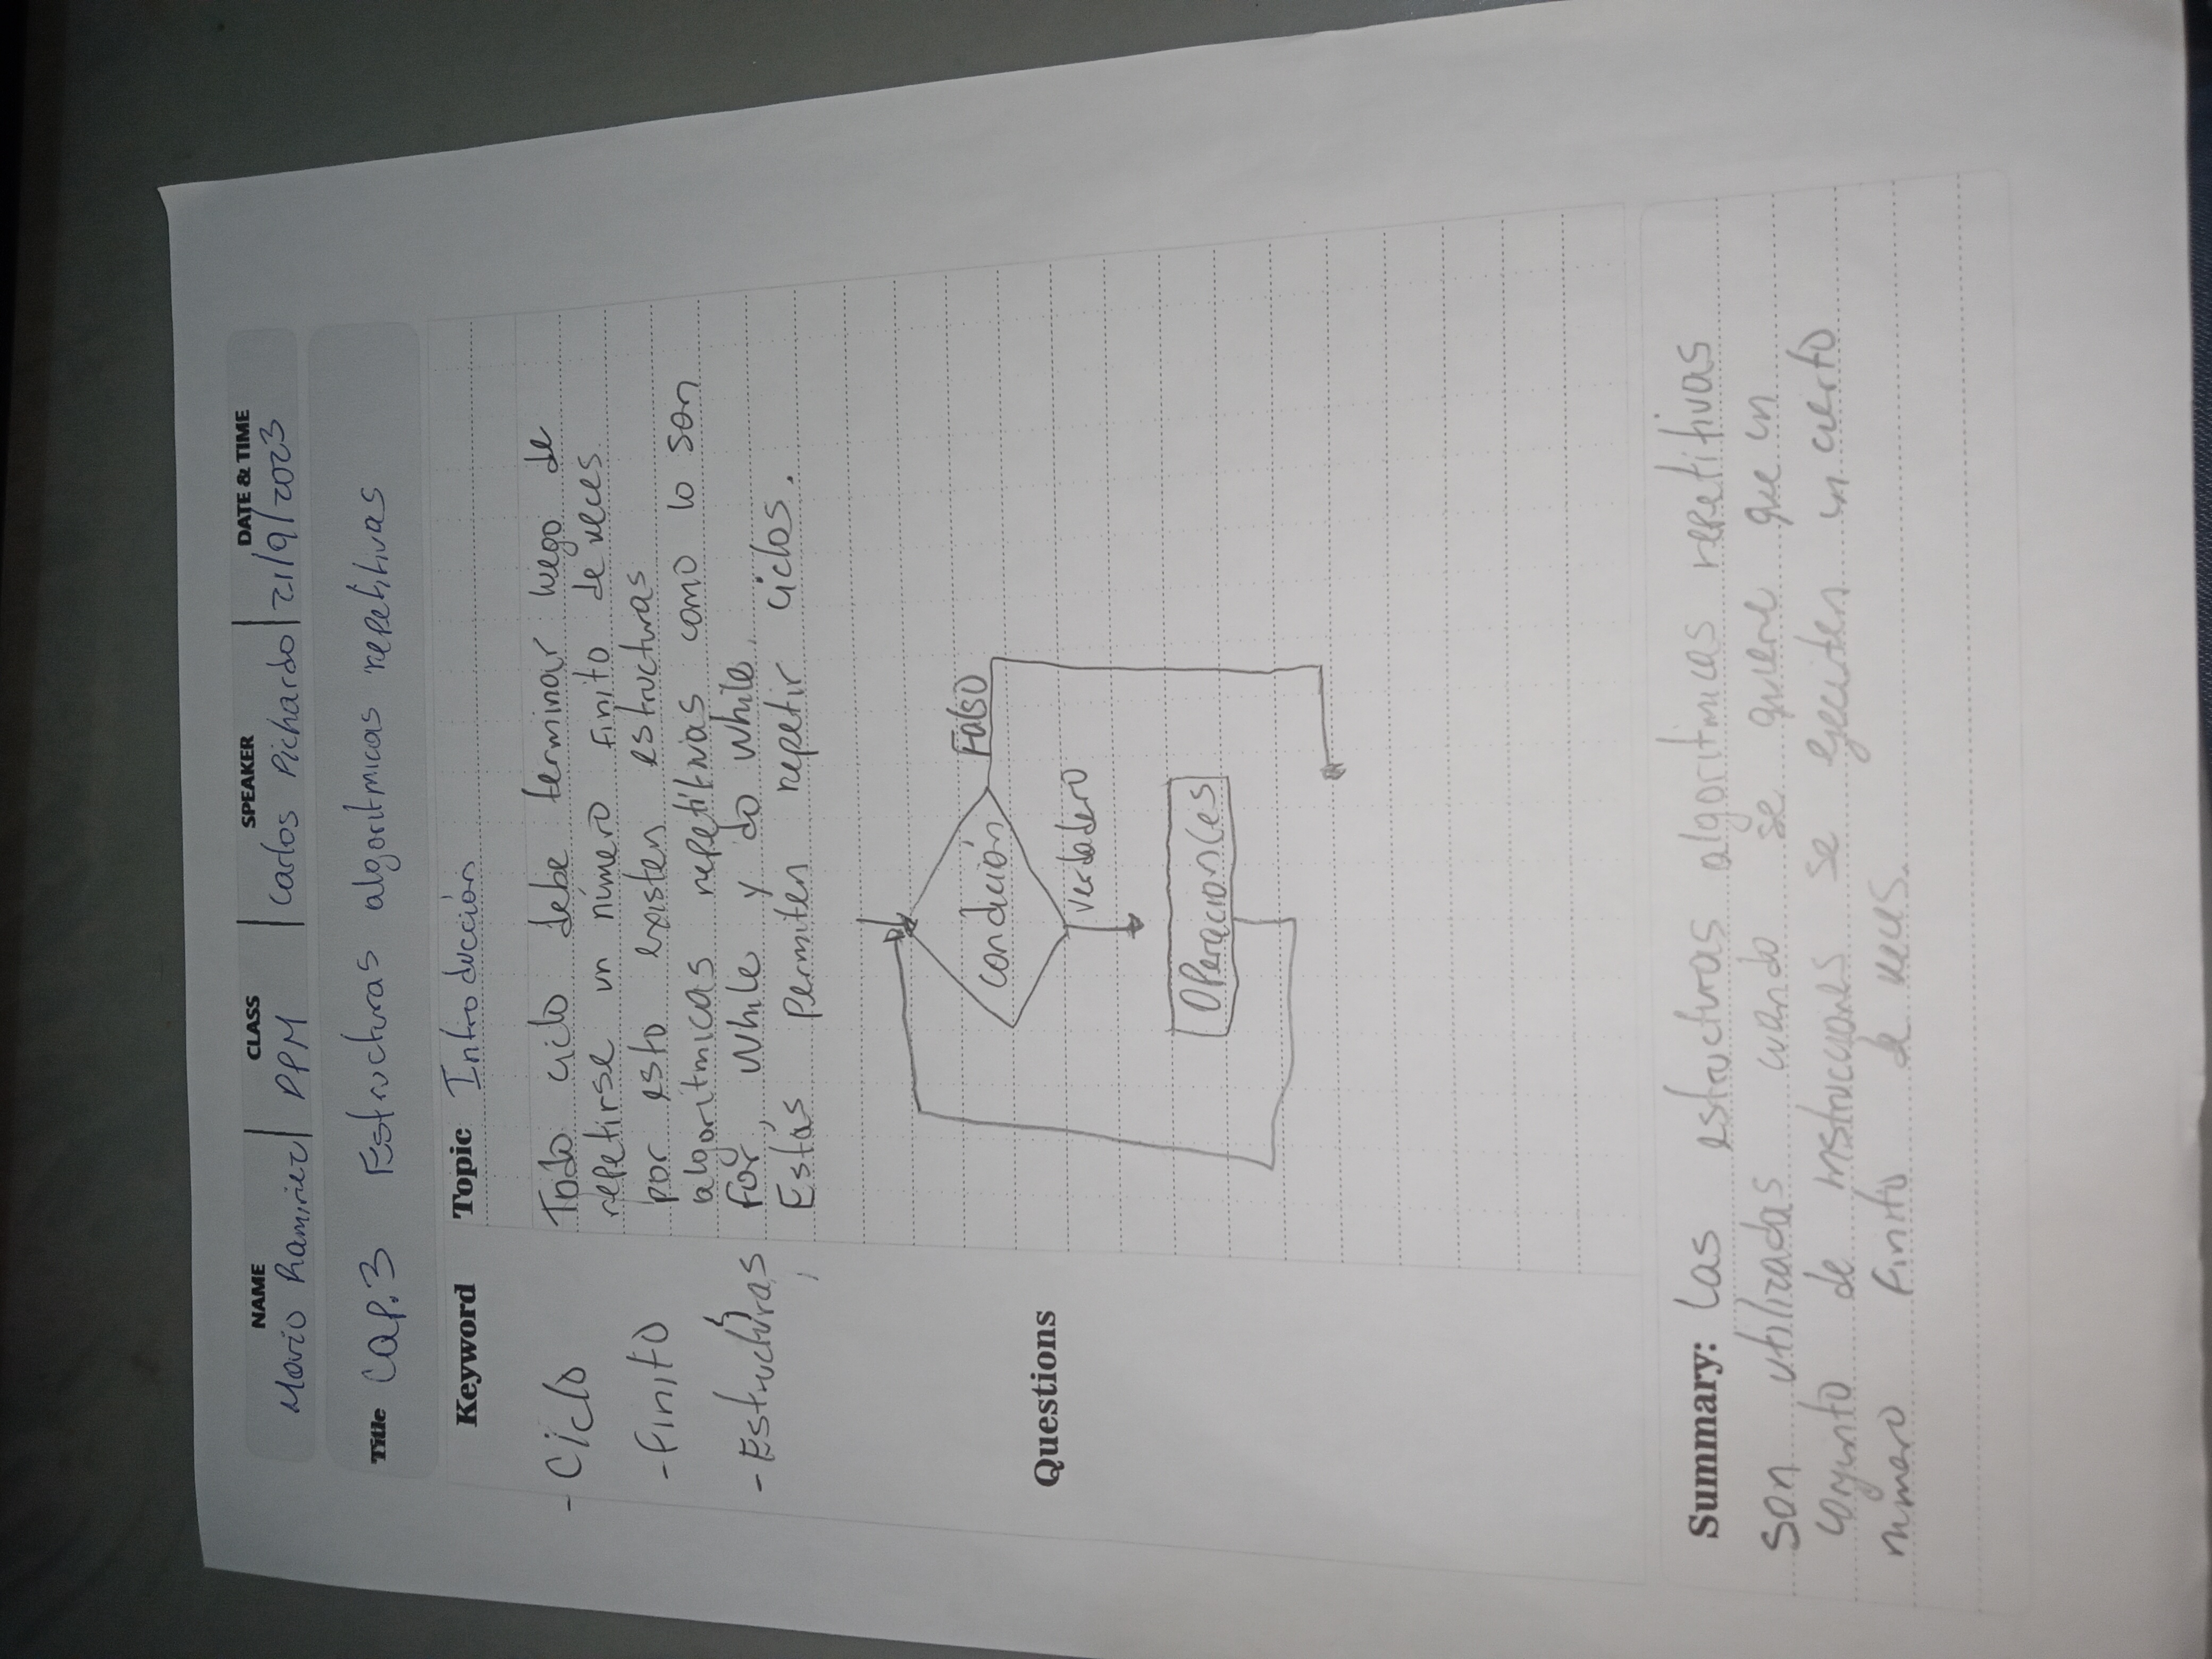 NAME CLASS SPEAKER DATE & TIME
Mario Ramirez PPM Carlos Pichardo 21/9/2023
Title Cap.3 Estructuras algoritmicas repetitivas
Keyword Topic Introducción
- Ciclo
- Finito
- Estructuras
Todo ciclo debe terminar luego de
repetirse un número finito de veces
por esto existen estructuras
algorítmicas repetitivas como lo son
for, while y do while.
Estas permiten repetir ciclos.
condición
Falso
verdadero
Operacion(es
Questions
Summary: Las estructuras algoritmicas repetitivas
son utilizadas cuando se quiere que un
conjunto de instrucciones se ejecuten un cierto
numero finito de veces.